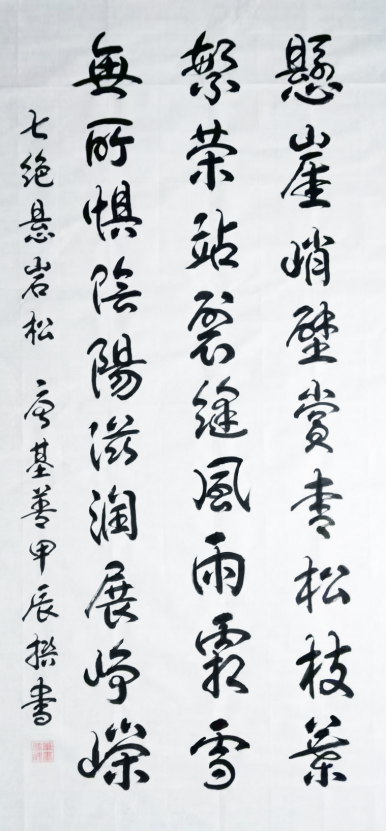 懸崖峭壁賞青松枝葉
繁荣站裂縫風雨霜雪
無所惧陰陽滋润展崢嶸
七绝悬岩松 唐基善甲辰撰書